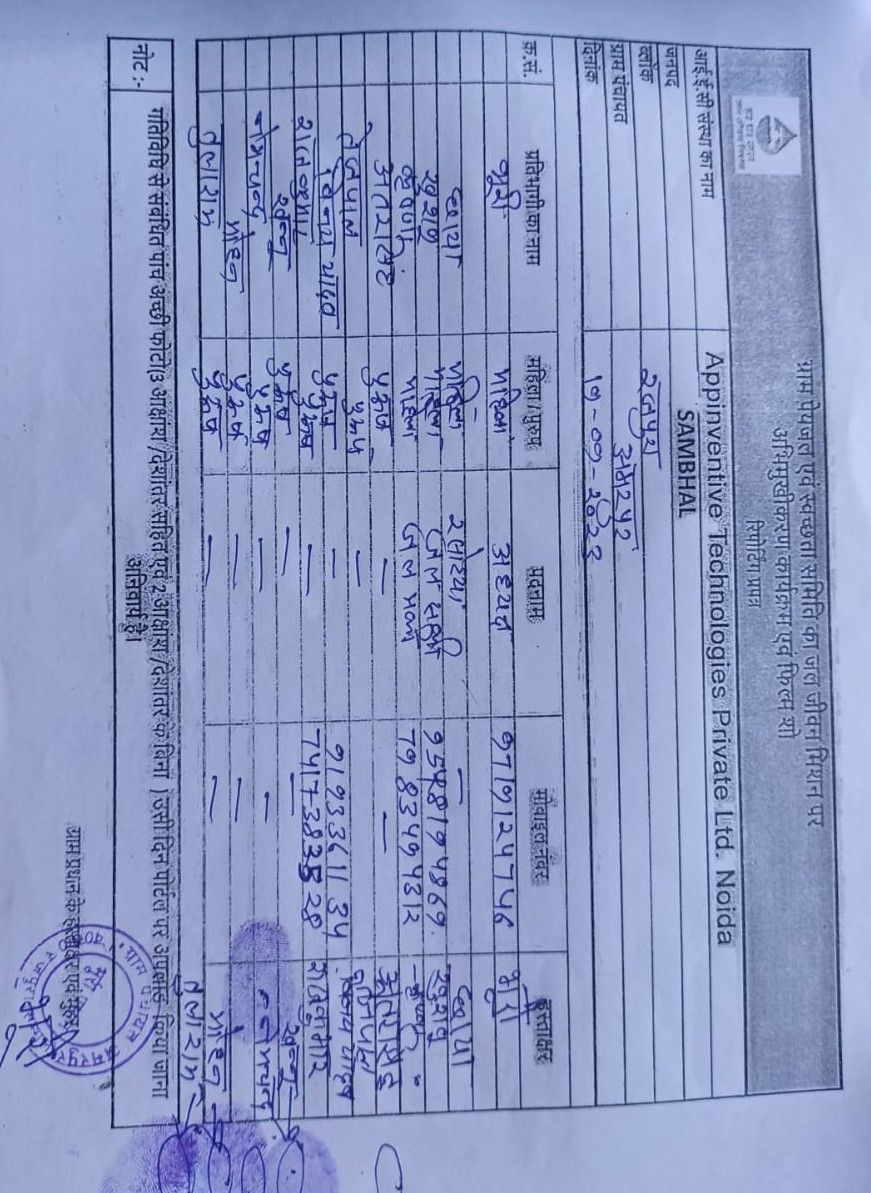 ग्राम पेयजल एवं स्वच्छता समिति का जल जीवन मिशन पर
अभिमुखीकरण कार्यक्रम एवं फिल्म शो
रिपोर्टिंग प्रपत्र
आई.ई.सी संस्था का नाम Appinventive Technologies Private Ltd. Noida
जनपद SAMBHAL
ब्लॉक रजपुरा
ग्राम पंचायत
दिनांक 19-09-2023
क्र.सं. प्रतिभागी का नाम महिला/पुरुष पदनाम मोबाइल नंबर हस्ताक्षर
भूरी महिला अध्यक्ष 9719124746 भूरी
छाया महिला — छाया
खुशबू महिला 9548194869 खुशबू
महिला 7983494312
पुरुष — —
तेजपाल पुरुष —
विनय यादव पुरुष — 9193361134 विनय यादव
राजकुमार पुरुष — 7417383828 राजकुमार
पुरुष — —
पुरुष — —
मोहन पुरुष — — मोहन
तुलाराम पुरुष — — तुलाराम
नोट :- गतिविधि से संबंधित पांच अच्छी फोटो(3 आक्षांश/देशांतर सहित एवं 2 आक्षांश/देशांतर के बिना) उसी दिन पोर्टल पर अपलोड किया जाना
अनिवार्य है।
ग्राम प्रधान के हस्ताक्षर एवं मुहर